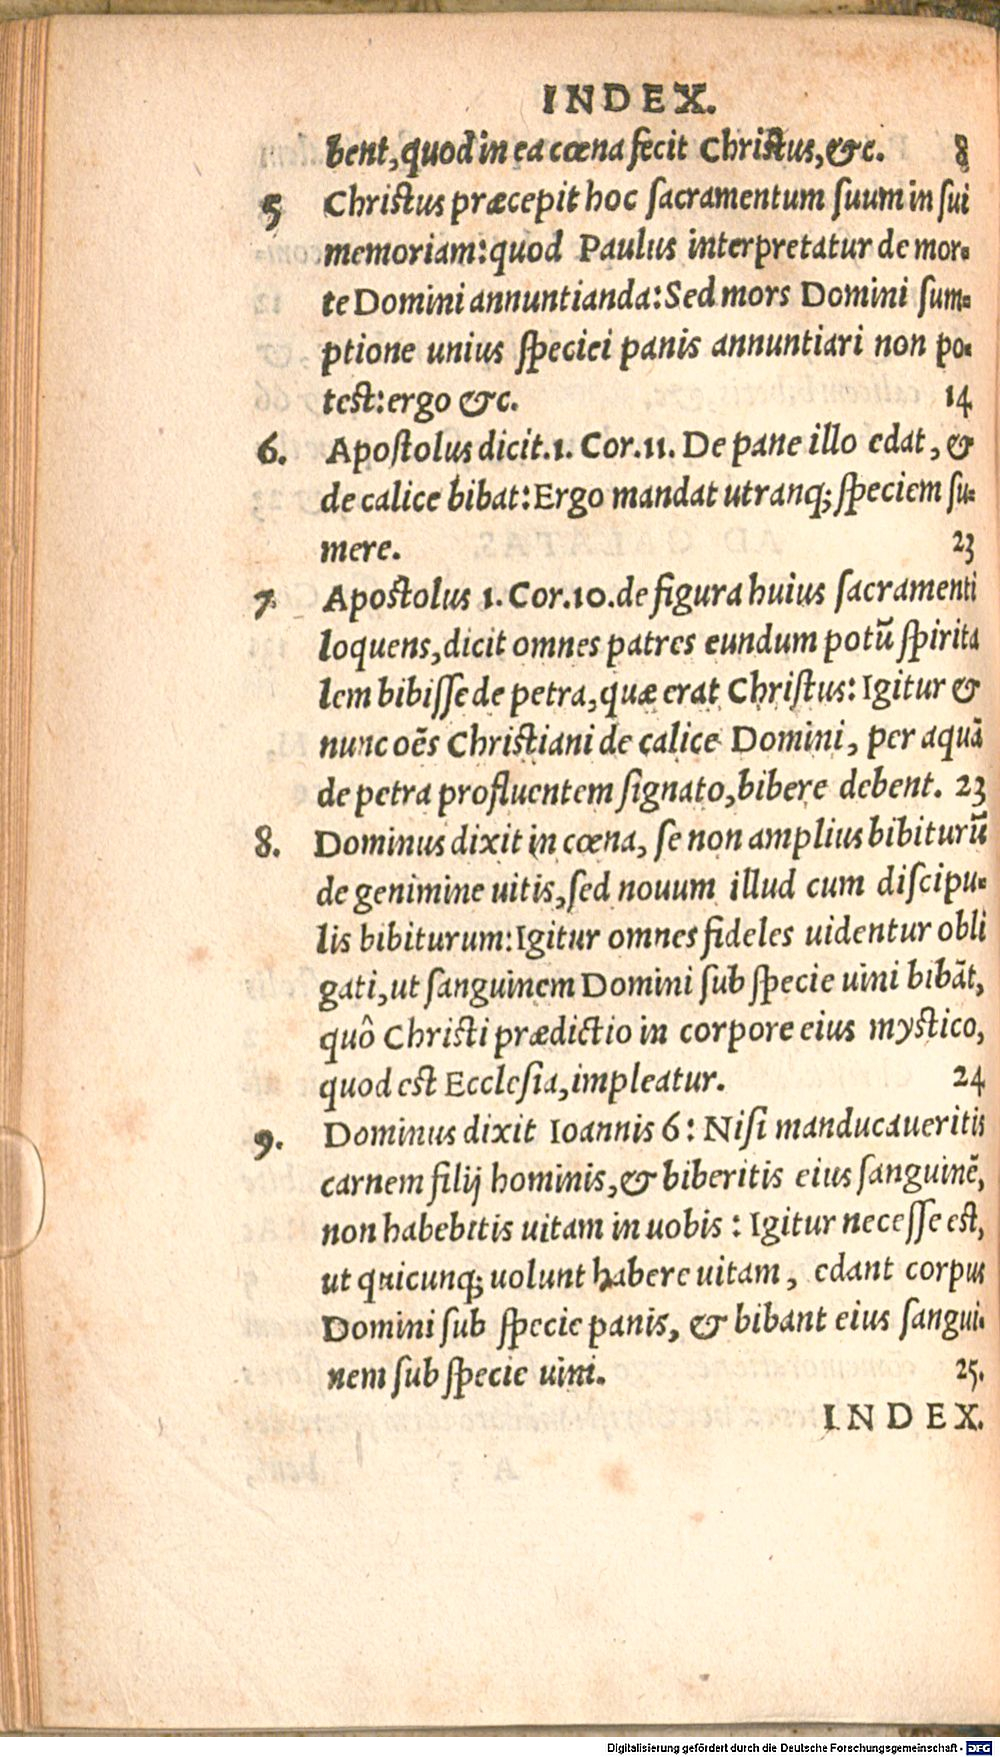 INDEX.
bent, quod in ea cœna fecit Christus, &c. 8
5 Christus præcepit hoc sacramentum suum in sui
memoriam: quod Paulus interpretatur de mor-
te Domini annuntianda: Sed mors Domini sum-
ptione unius speciei panis annuntiari non po-
test: ergo &c. 14
6. Apostolus dicit. 1. Cor. 11. De pane illo edat, &
de calice bibat: Ergo mandat utranq; speciem su-
mere. 23
7. Apostolus 1. Cor. 10. de figura huius sacramenti
loquens, dicit omnes patres eundum potū spirita
lem bibisse de petra, quæ erat Christus: Igitur &
nunc oēs Christiani de calice Domini, per aquā
de petra profluentem signato, bibere debent. 23
8. Dominus dixit in cœna, se non amplius bibiturū
de genimine uitis, sed nouum illud cum discipu-
lis bibiturum: Igitur omnes fideles uidentur obli
gati, ut sanguinem Domini sub specie uini bibāt,
quô Christi prædictio in corpore eius mystico,
quod est Ecclesia, impleatur. 24
9. Dominus dixit Ioannis 6: Nisi manducaueritis
carnem filij hominis, & biberitis eius sanguinē,
non habebitis uitam in uobis: Igitur necesse est,
ut quicunq; uolunt habere uitam, edant corpus
Domini sub specie panis, & bibant eius sangui-
nem sub specie uini. 25.
INDEX.
Digitalisierung gefördert durch die Deutsche Forschungsgemeinschaft - DFG